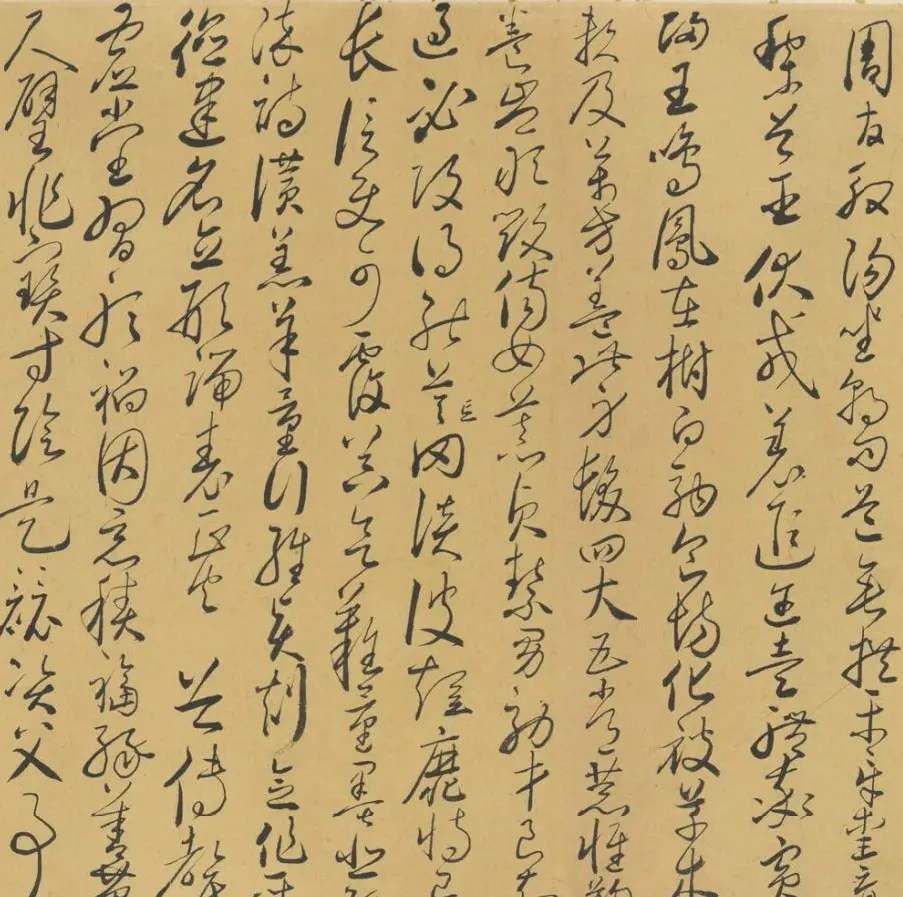 周發殷湯坐朝問道垂拱平章愛育
黎首臣伏戎羌遐迩壹體率賓
歸王鳴鳳在樹白駒食場化被草木
賴及萬方蓋此身髮四大五常恭惟鞠
養豈敢毀傷女慕貞絜男効才良知
過必改得能莫忘罔談彼短靡恃己
長信使可覆器欲難量墨悲絲
染詩讚羔羊景行維賢剋念作聖
德建名立形端表正空谷傳聲
虛堂習聽禍因惡積福緣善慶
尺璧非寶寸陰是競資父事